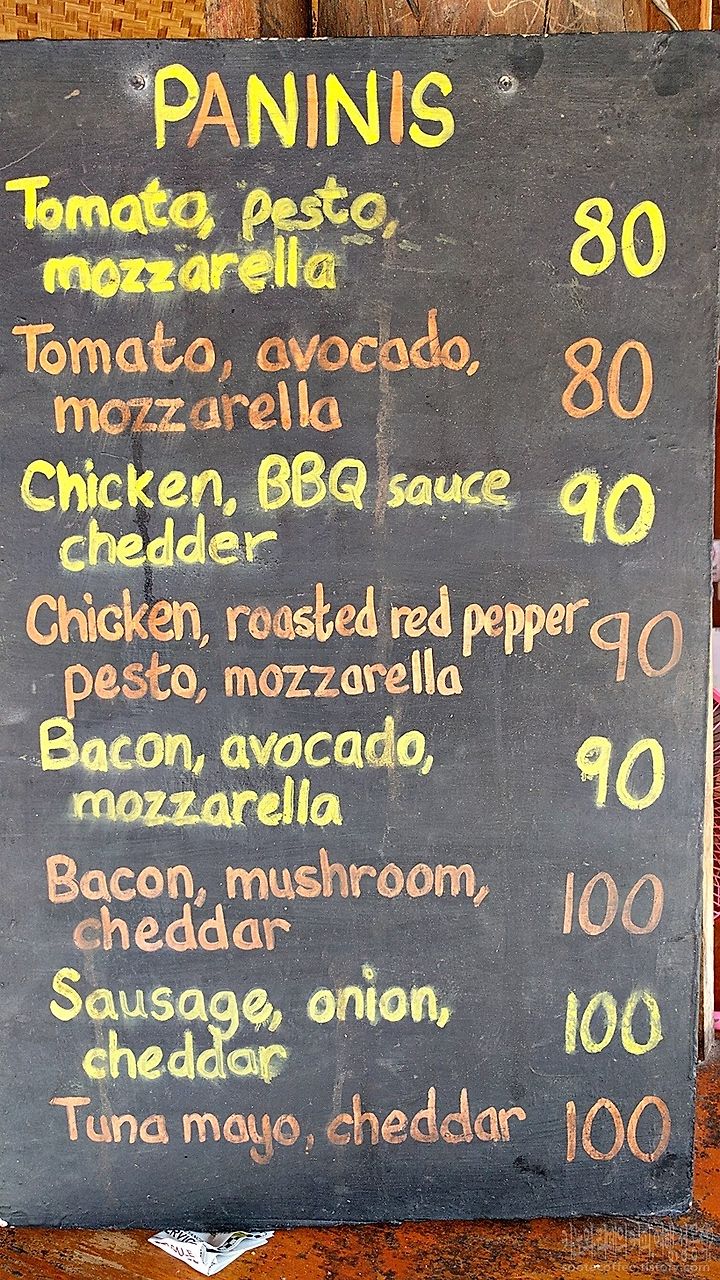 PANINIS
Tomato, pesto,
mozzarella 80
Tomato, avocado,
mozzarella 80
Chicken, BBQ sauce
chedder 90
Chicken, roasted red pepper
pesto, mozzarella 90
Bacon, avocado,
mozzarella 90
Bacon, mushroom,
cheddar 100
Sausage, onion,
cheddar 100
Tuna mayo, cheddar 100